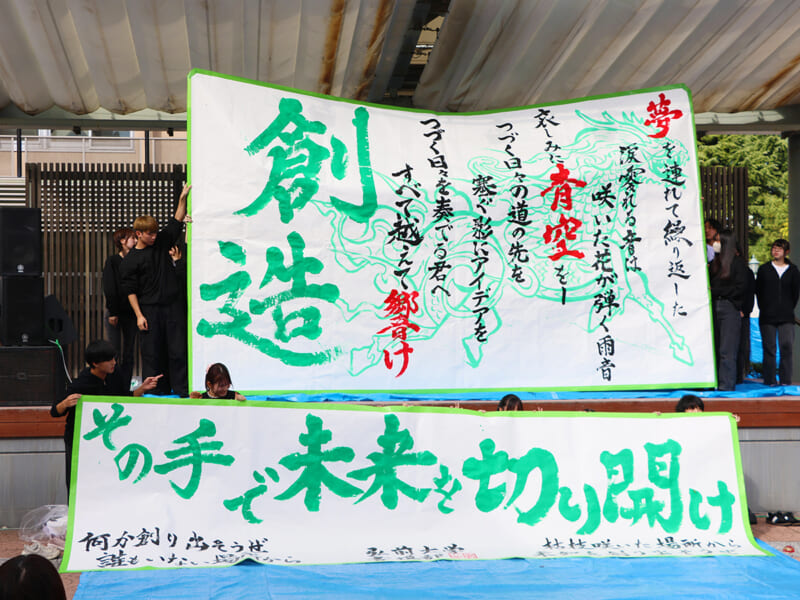 夢を連れて繰り返した
涙零れる音は
咲いた花が弾く雨音
哀しみに青空を
つづく日々の道の先を
塞ぐ影にアイデアを
つづく日々を奏でる君へ
すべて越えて響け
創造
その手で未来を切り開け
何か創り出そうぜ
誰もいない場所から
弘前大学
枯枝咲いた場所から